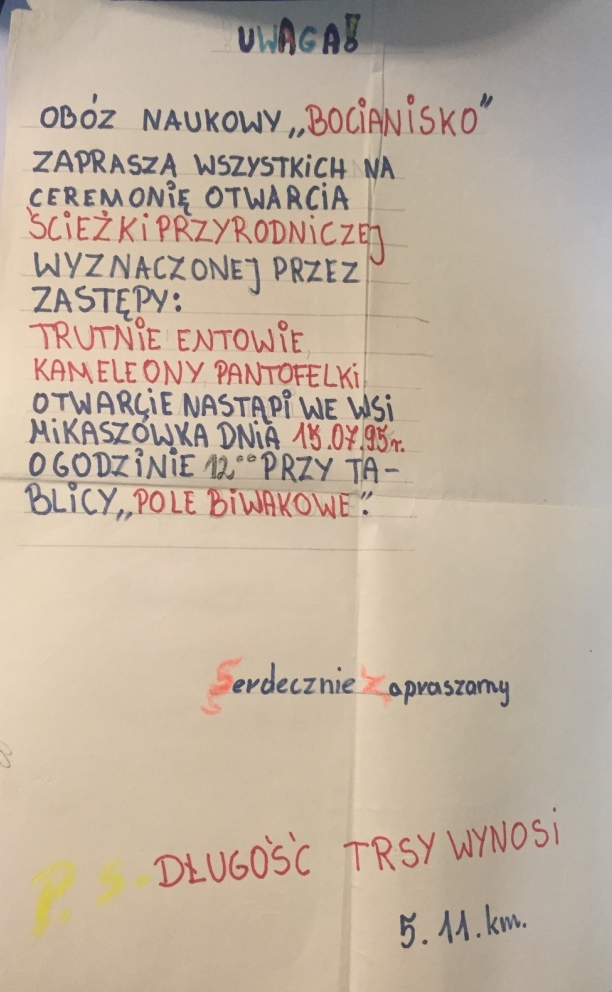 UWAGA!
OBÓZ NAUKOWY „BOCIANISKO”
ZAPRASZA WSZYSTKICH NA
CEREMONIĘ OTWARCIA
ŚCIEŻKI PRZYRODNICZEJ
WYZNACZONEJ PRZEZ
ZASTĘPY:
TRUTNIE ENTOWIE
KAMELEONY PANTOFELKI
OTWARCIE NASTĄPI WE WSI
MIKASZÓWKA DNIA 15.07.95r.
O GODZINIE 12⁰⁰ PRZY TA-
BLICY „POLE BIWAKOWE”.
Serdecznie Zapraszamy
P.S. DŁUGOŚĆ TRSY WYNOSI
5.11.km.